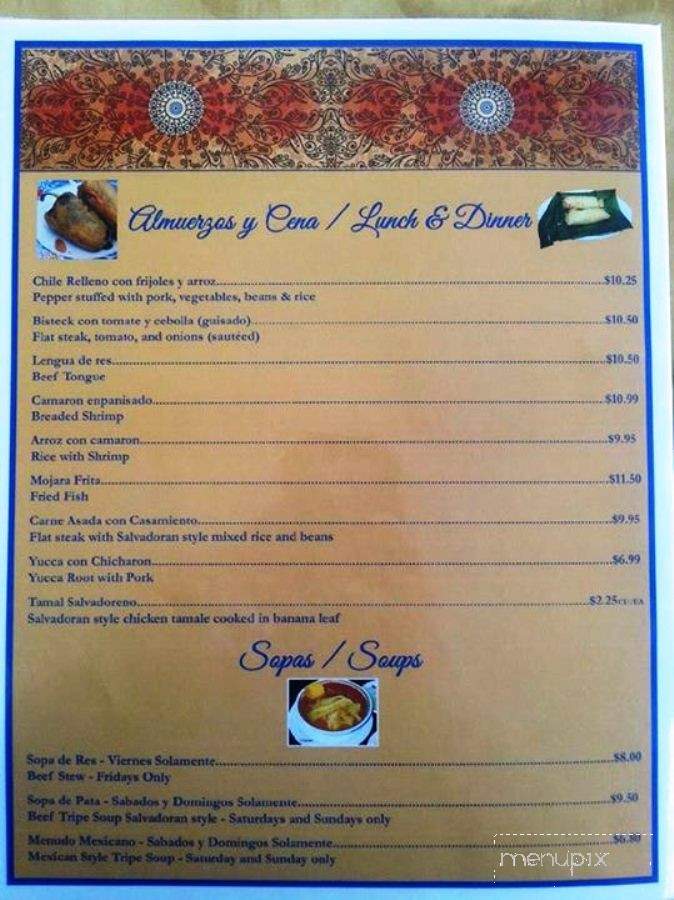 Almuerzos y Cena / Lunch & Dinner
Chile Relleno con frijoles y arroz $10.25
Pepper stuffed with pork, vegetables, beans & rice
Bisteck con tomate y cebolla (guisado) $10.50
Flat steak, tomato, and onions (sautéed)
Lengua de res $10.50
Beef Tongue
Camaron enpanisado $10.99
Breaded Shrimp
Arroz con camaron $9.95
Rice with Shrimp
Mojara Frita $11.50
Fried Fish
Carne Asada con Casamiento $9.95
Flat steak with Salvadoran style mixed rice and beans
Yucca con Chicharon $6.99
Yucca Root with Pork
Tamal Salvadoreno $2.25
Salvadoran style chicken tamale cooked in banana leaf
Sopas / Soups
Sopa de Res - Viernes Solamente $8.00
Beef Stew - Fridays Only
Sopa de Pata - Sabados y Domingos Solamente $9.50
Beef Tripe Soup Salvadoran style - Saturdays and Sundays only
Menudo Mexicano - Sabados y Domingos Solamente
Mexican Style Tripe Soup - Saturday and Sunday only
menupix